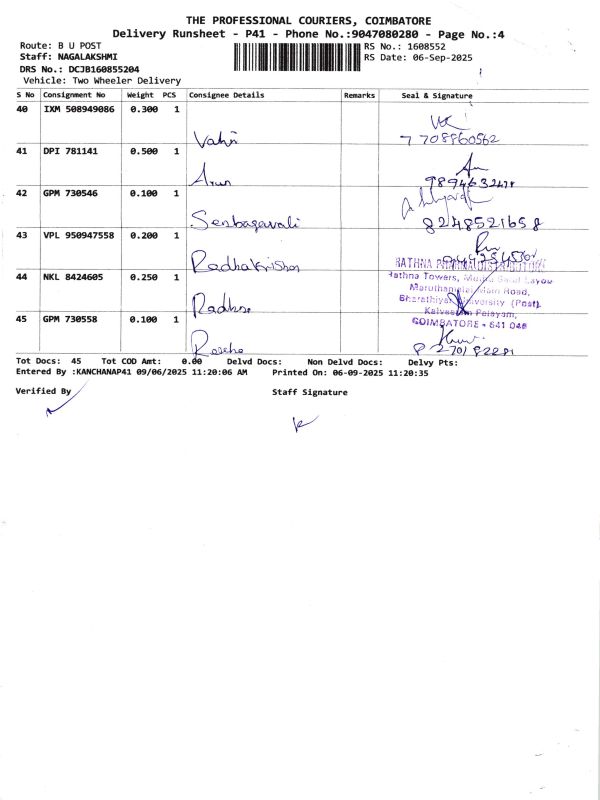 THE PROFESSIONAL COURIERS, COIMBATORE
Delivery Runsheet - P41 - Phone No.:9047080280 - Page No.:4
Route: B U POST
RS No.: 1608552
Staff: NAGALAKSHMI
RS Date: 06-Sep-2025
DRS No.: DCJB160855204
Vehicle: Two Wheeler Delivery
S No Consignment No Weight PCS Consignee Details Remarks Seal & Signature
40 IXM 508949086 0.300 1
7708860562
41 DPI 781141 0.500 1
Arun
42 GPM 730546 0.100 1
Senbagavali 8248521658
43 VPL 950947558 0.200 1
Radhakrishnan
RATHNA
Rathna Towers, Layou
44 NKL 8424605 0.250 1
Maruthamalai Main Road,
Bharathiyar University (Post).
Radha
Kalveeram Palayam,
45 GPM 730558 0.100 1
COIMBATORE - 641 046
Tot Docs: 45 Tot COD Amt: 0.00 Delvd Docs: Non Delvd Docs: Delvy Pts:
Entered By :KANCHANAP41 09/06/2025 11:20:06 AM Printed On: 06-09-2025 11:20:35
Verified By Staff Signature